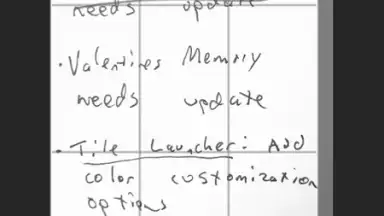 needs update
· Valentines Memory
needs update
· Tile Launcher: Add
color customization
options